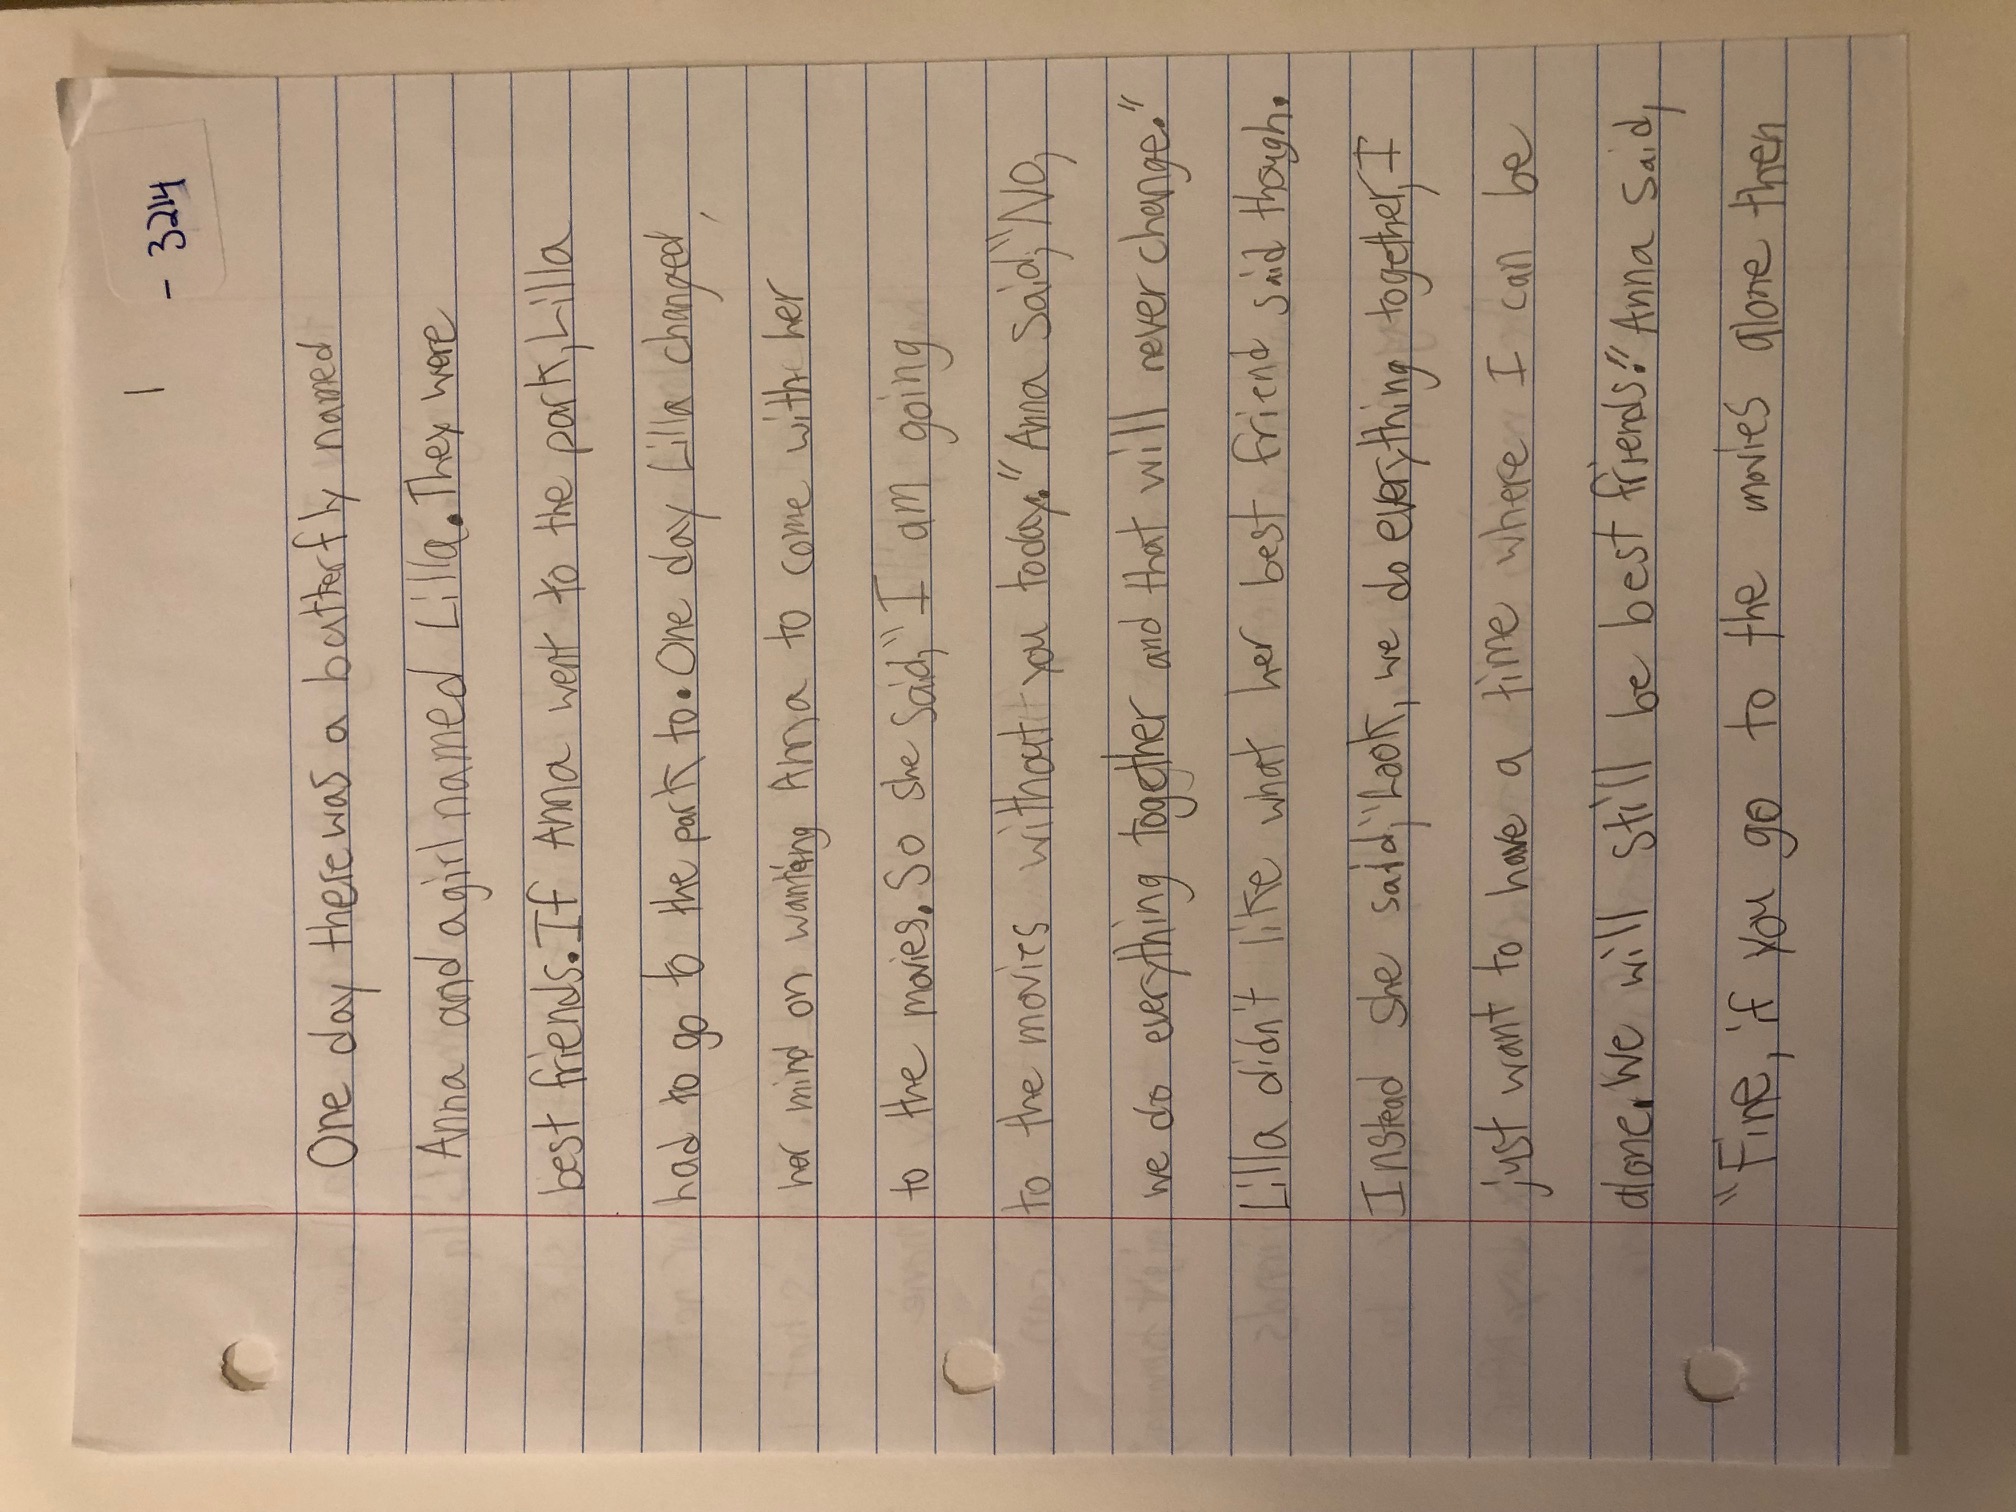 1 - 3214
One day there was a butterfly named
Anna and a girl named Lilla. They were
best friends. If Anna went to the park, Lilla
had to go to the park to. One day Lilla changed
her mind on wanting Anna to come with her
to the movies. So she said, "I am going
to the movies without you today." Anna said, "No,
we do everything together and that will never change."
Lilla didn't like what her best friend said though.
Instead she said, "Look, we do everything together, I
just want to have a time where I can be
alone. We will still be best friends." Anna said,
"Fine, if you go to the movies alone then